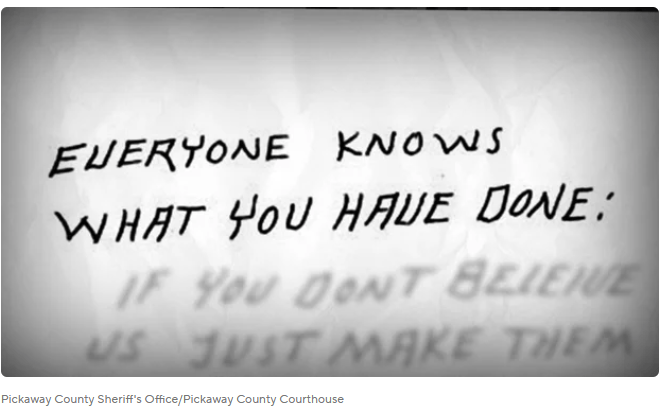 EVERYONE KNOWS
WHAT YOU HAVE DONE:
IF YOU DONT BELEIVE
US JUST MAKE THEM
Pickaway County Sheriff's Office/Pickaway County Courthouse